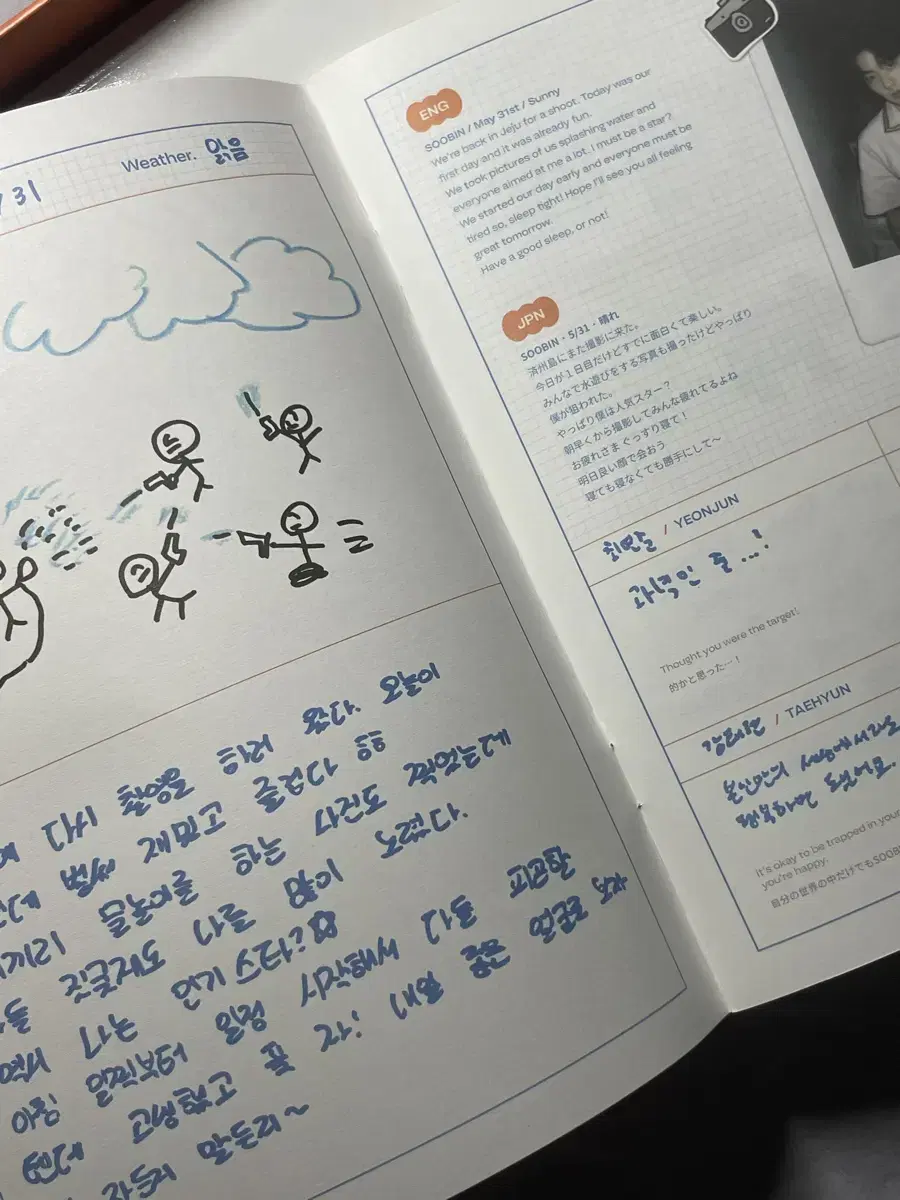 / 31
Weather. 맑음
다시 촬영을 하러 왔다. 오늘이
벌써 재밌고 즐겁다
물놀이를 하는 사진도 찍었는데
나를 많이 노렸다.
나는 인기스타
아침 일찍부터 일정 시작해서 다들 피곤할
텐데 고생했고 푹 자! 내일 좋은
말든지~
ENG
SOOBIN / May 31st / Sunny
We're back in Jeju for a shoot. Today was our
first day and it was already fun.
We took pictures of us splashing water and
everyone aimed at me a lot. I must be a star?
We started our day early and everyone must be
tired so, sleep tight! Hope I'll see you all feeling
great tomorrow.
Have a good sleep, or not!
JPN
SOOBIN・5/31・晴れ
済州島にまた撮影に来た。
今日が１日目だけどすでに面白くて楽しい。
みんなで水遊びをする写真も撮ったけどやっぱり
僕が狙われた。
やっぱり僕は人気スター？
朝早くから撮影してみんな疲れてるよね
お疲れさまぐっすり寝て！
明日良い顔で会おう
寝ても寝なくても勝手にして～
최연준 / YEONJUN
과녁인 줄...!
Thought you were the target!
的かと思った…！
강태현 / TAEHYUN
본인만의 세상에서라도
행복하면 됐어요.
It's okay to be trapped in your
you're happy.
自分の世界の中だけでもSOOB